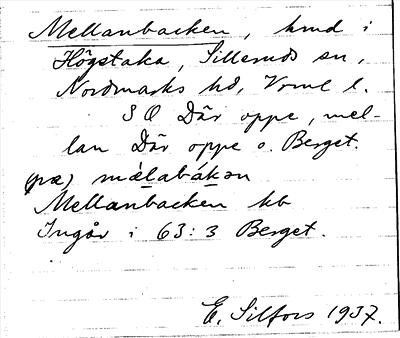 Mellanbacken, hmd i
Högstaka, Silleruds sn,
Nordmarks hd, Vrml l.
S O Där oppe, mel-
lan Där oppe o. Berget.
(pæ) mèlabákən
Mellanbacken kb
Ingår i 63:3 Berget.
E. Silfors 1937.